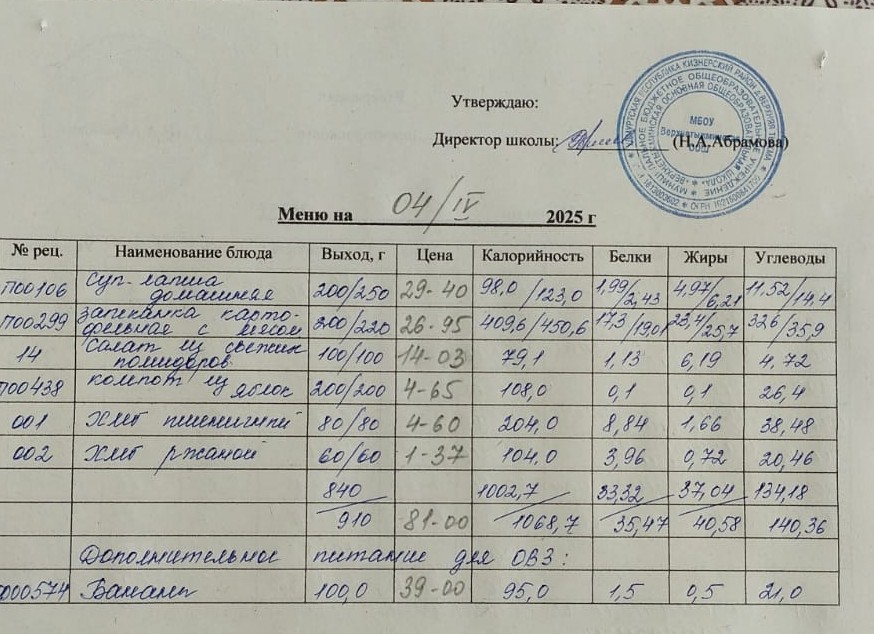 Утверждаю:
Директор школы: (Н.А.Абрамова)
МБОУ
ООШ
Меню на 04/IV 2025 г
№ рец. Наименование блюда Выход, г Цена Калорийность Белки Жиры Углеводы
П00106 Суп-лапша домашняя 200/250 29-40 98,0/123,0 1,99/2,43 4,97/6,21 11,52/14,4
П00299 Запеканка картофельная с мясом 200/220 26-95 409,6/450,6 17,3/19,01 23,4/25,7 32,6/35,9
14 Салат из свежих помидоров 100/100 14-03 79,1 1,13 6,19 4,72
П00438 компот из яблок 200/200 4-65 108,0 0,1 0,1 26,4
001 Хлеб пшеничный 80/80 4-60 204,0 8,84 1,66 38,48
002 Хлеб ржаной 60/60 1-37 104,0 3,96 0,72 20,46
840 1002,7 33,32 37,04 134,18
910 81-00 1068,7 35,47 40,58 140,36
Дополнительное питание для ОВЗ:
000574 Бананы 100,0 39-00 95,0 1,5 0,5 21,0